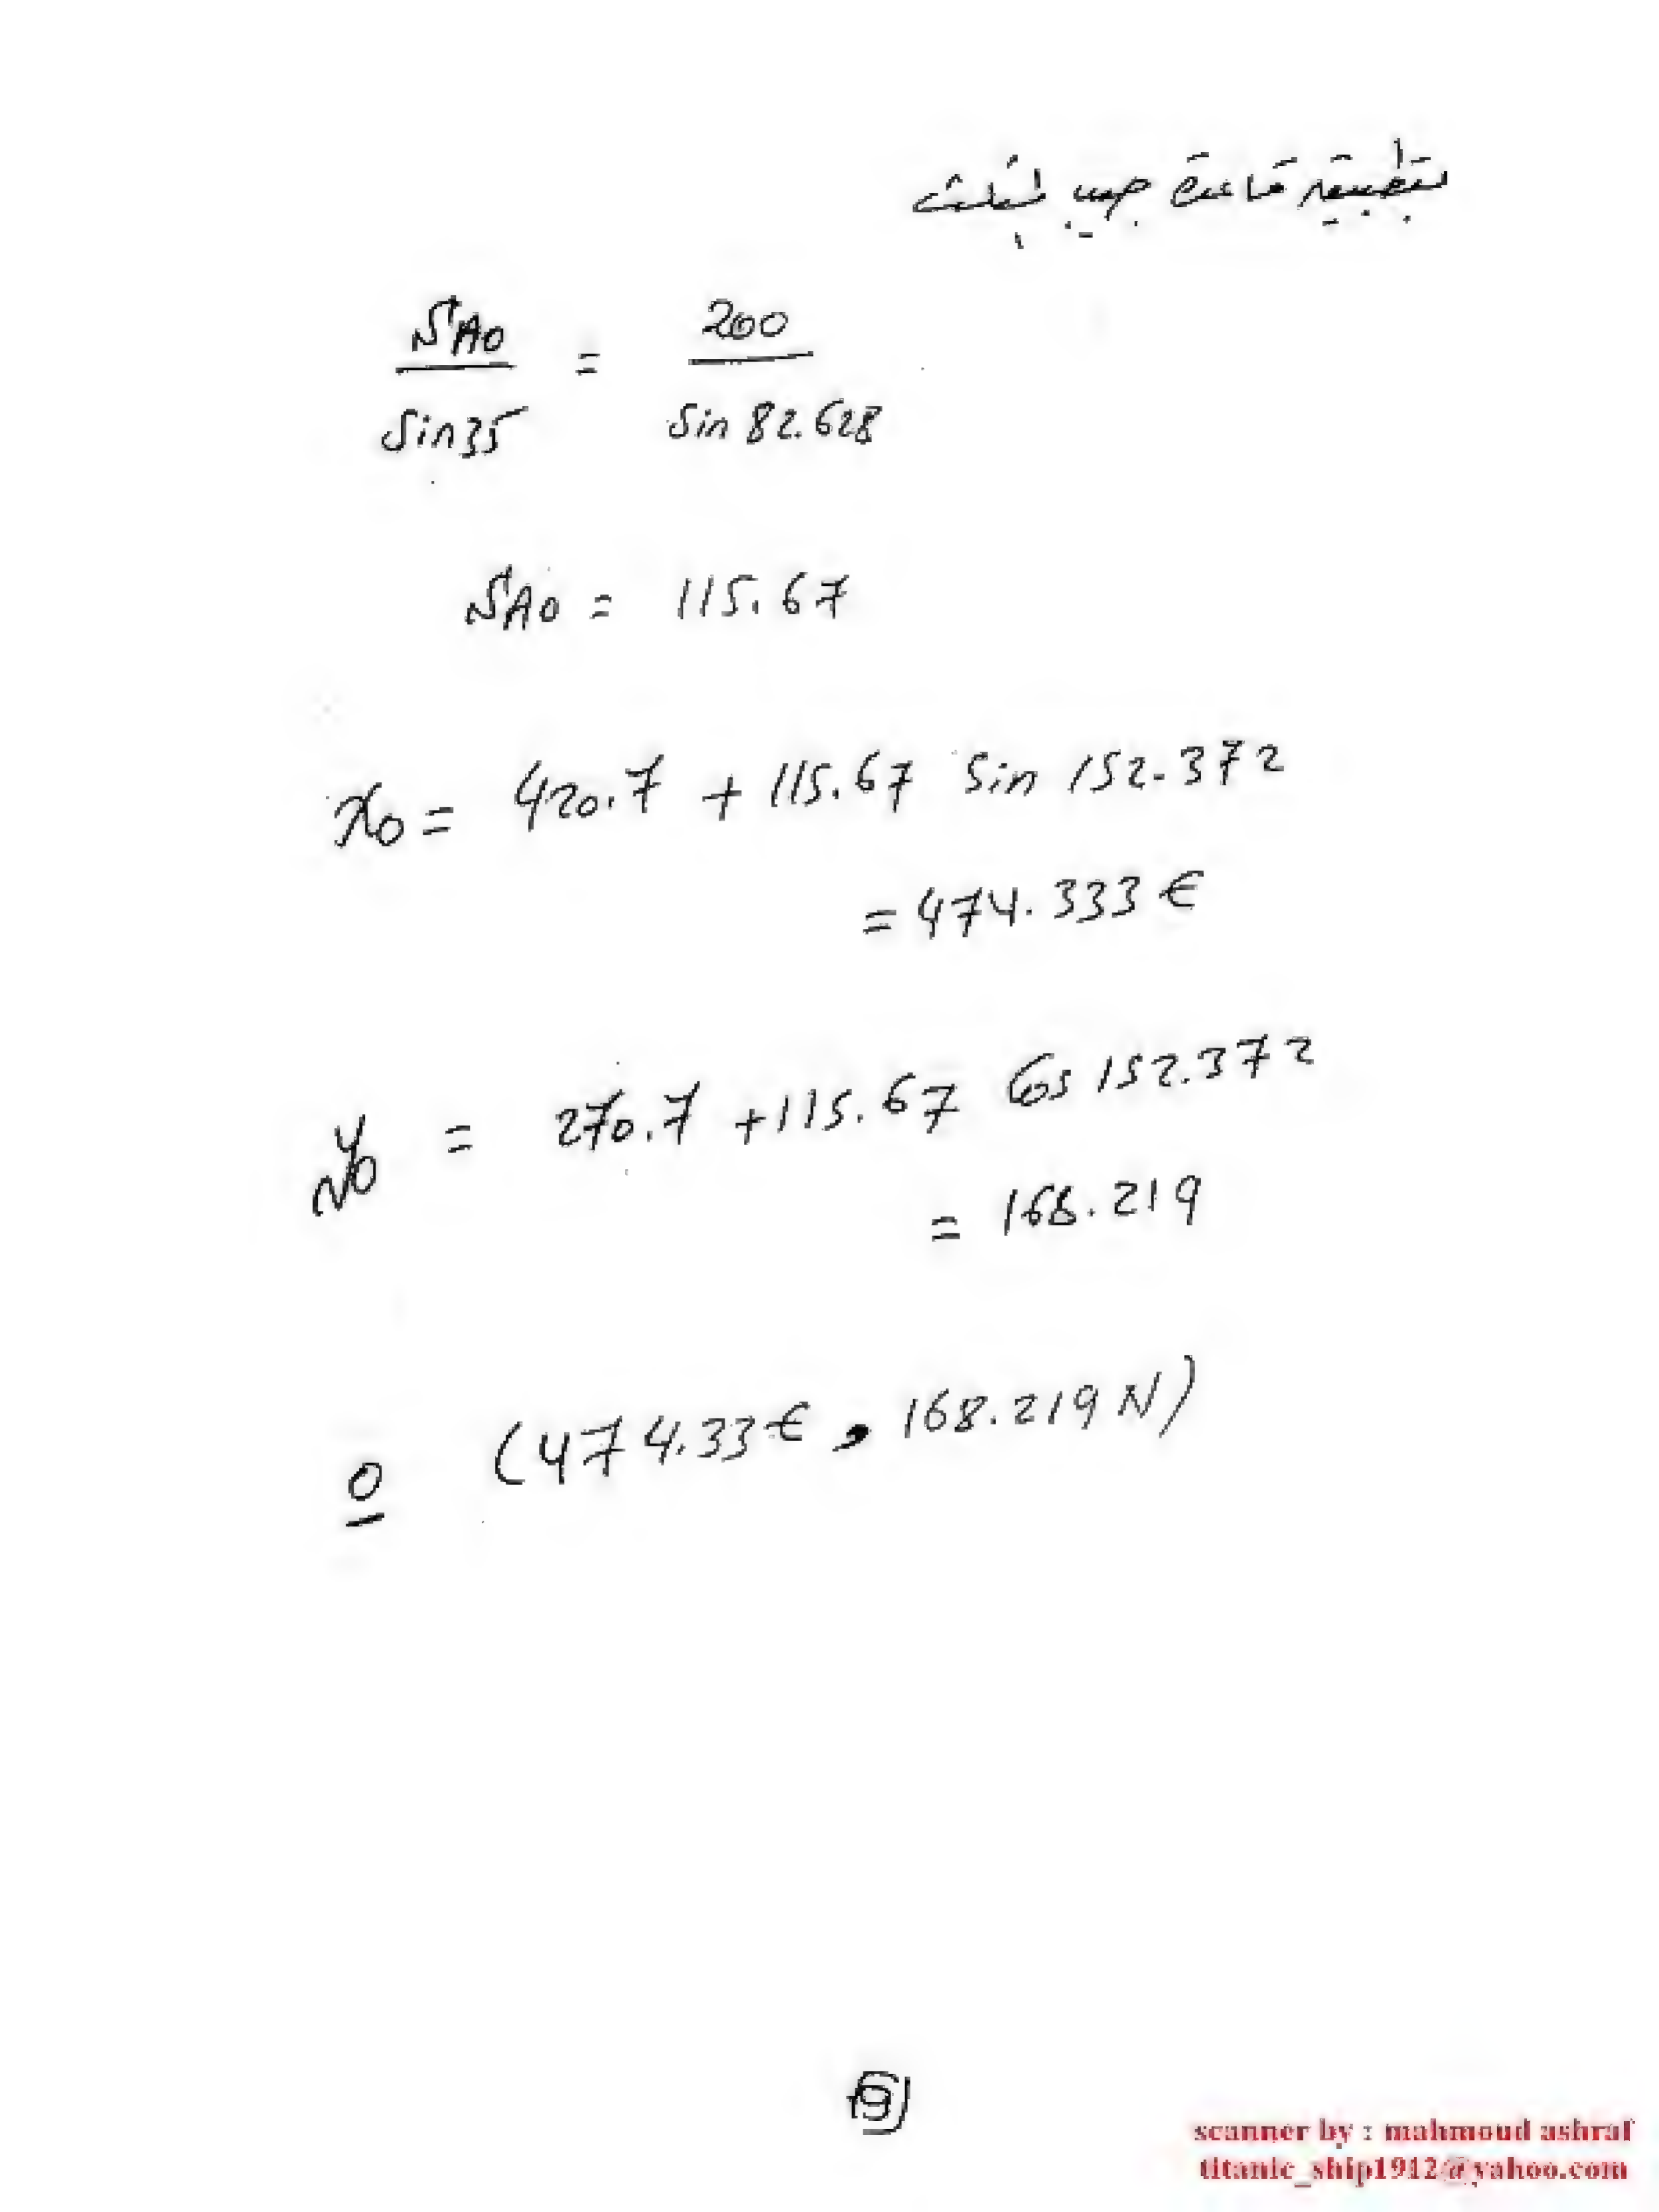 بتطبيق قاعدة جيب المثلث
SAO / Sin 35 = 200 / Sin 82.628
SAO = 115.67
xo = 420.7 + 115.67 Sin 152.372
= 474.333 E
yo = 270.7 + 115.67 Cos 152.372
= 168.219
O (474.33 E , 168.219 N)
scanner by : mahmoud ashraf
titanic_ship1912@yahoo.com